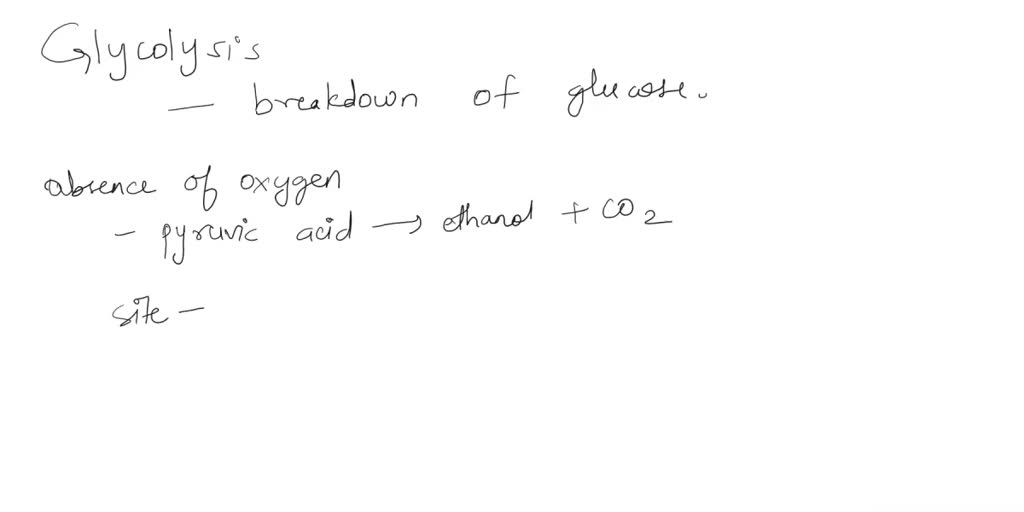 Glycolysis
— breakdown of glucose.
absence of oxygen
- pyruvic acid → ethanol + CO2
site -